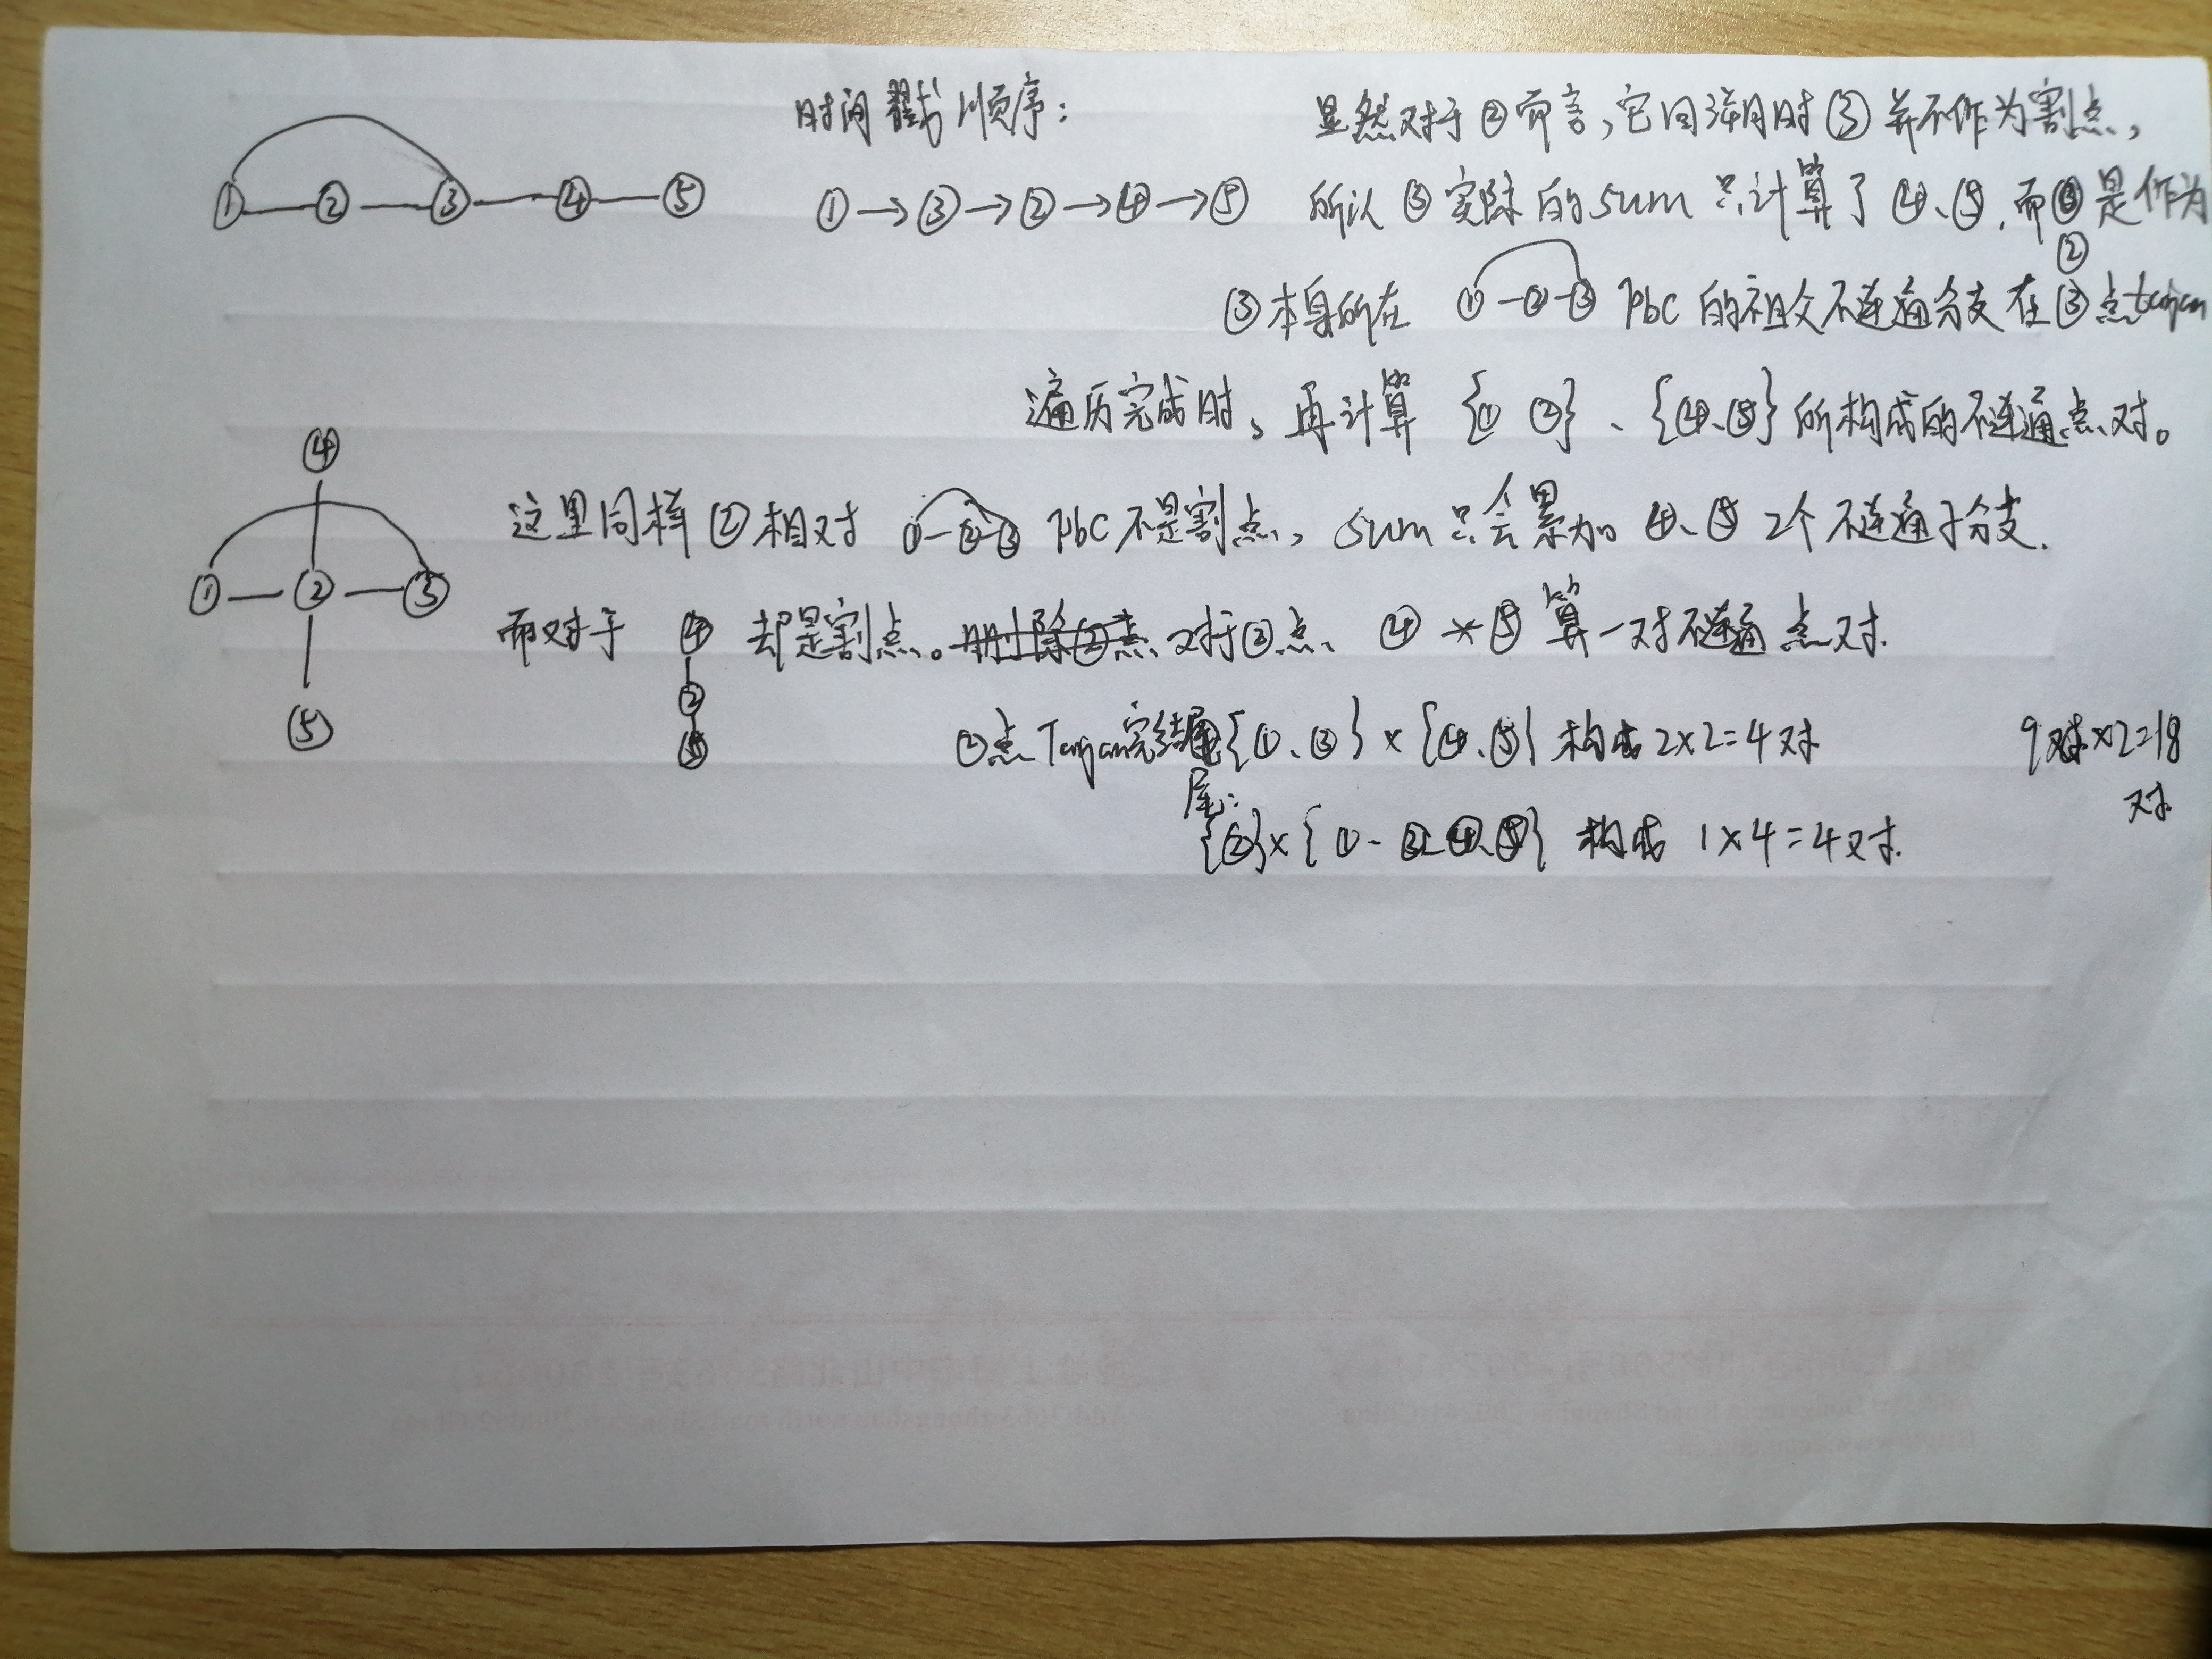 时间戳顺序：
①→③→②→④→⑤
① ② ③ ④ ⑤
显然对于②而言，它回溯时③并不作为割点，
所以③实际的sum只计算了④、⑤，而②是作为
③本身所在 ①-②-③ pbc的祖父不连通分支在③点tarjan
遍历完成时，再计算{① ②}、{④、⑤}所构成的不连通点对。
④
① ② ③
⑤
这里同样②相对 ①-②-③ pbc不是割点，sum只会累加④、⑤2个不连通子分支.
而对于 ④ ② ⑤ 却是割点。对于②点、④*⑤算一对不连通点对.
②点Tarjan完结尾：{①、③}×{④、⑤}构成2×2=4对
{②}×{①、③、④、⑤}构成1×4=4对.
9对×2=18
对